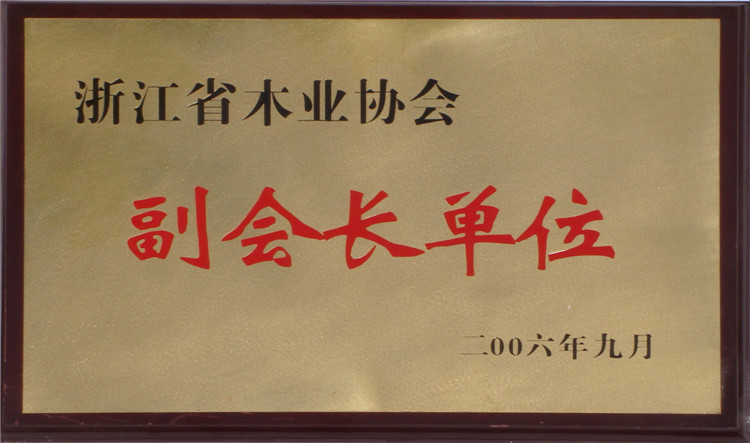 浙江省木业协会
副会长单位
二00六年九月